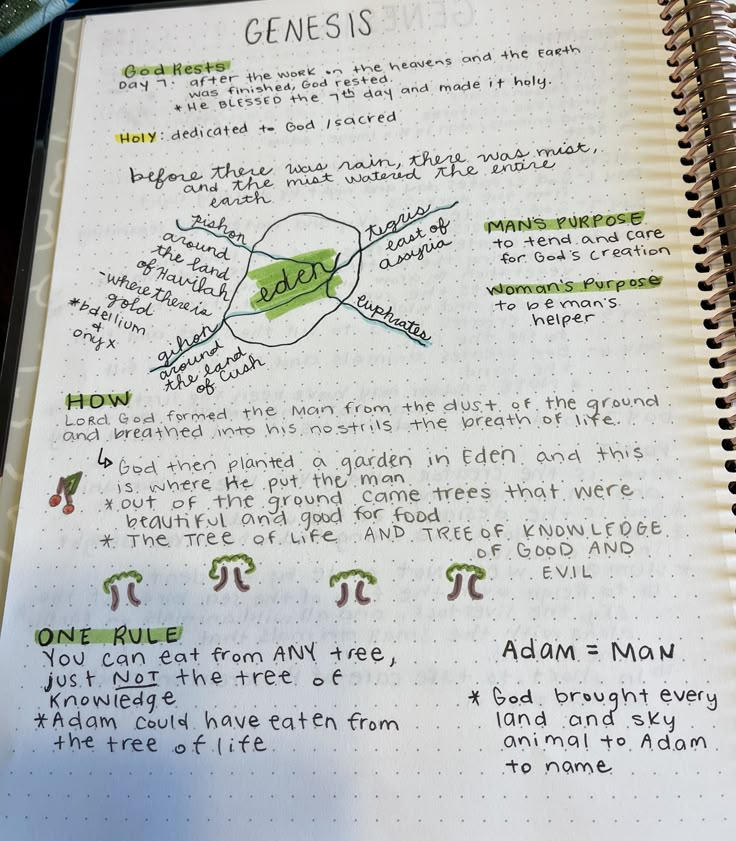 GENESIS
God Rests
Day 7: after the work on the heavens and the EARTH
was finished, God rested.
* He BLESSED the 7th day and made it holy.
Holy: dedicated to God / sacred
before there was rain, there was mist,
and the mist watered the entire
earth
pishon
around
the land
of Havilah
- where there is
gold
* bdellium
+
onyx
tigris
east of
assyria
eden
gihon
around
the land
of Cush
euphrates
MAN'S PURPOSE
to tend and care
for God's creation
Woman's Purpose
to be man's
helper
HOW
LORD God formed the Man from the dust of the ground
and breathed into his nostrils the breath of life.
↳ God then planted a garden in Eden and this
is where He put the man
* out of the ground came trees that were
beautiful and good for food
* The Tree of Life AND TREE OF KNOWLEDGE
OF GOOD AND
EVIL
ONE RULE
You can eat from ANY tree,
just NOT the tree of
Knowledge
* Adam could have eaten from
the tree of life
Adam = Man
* God brought every
land and sky
animal to Adam
to name